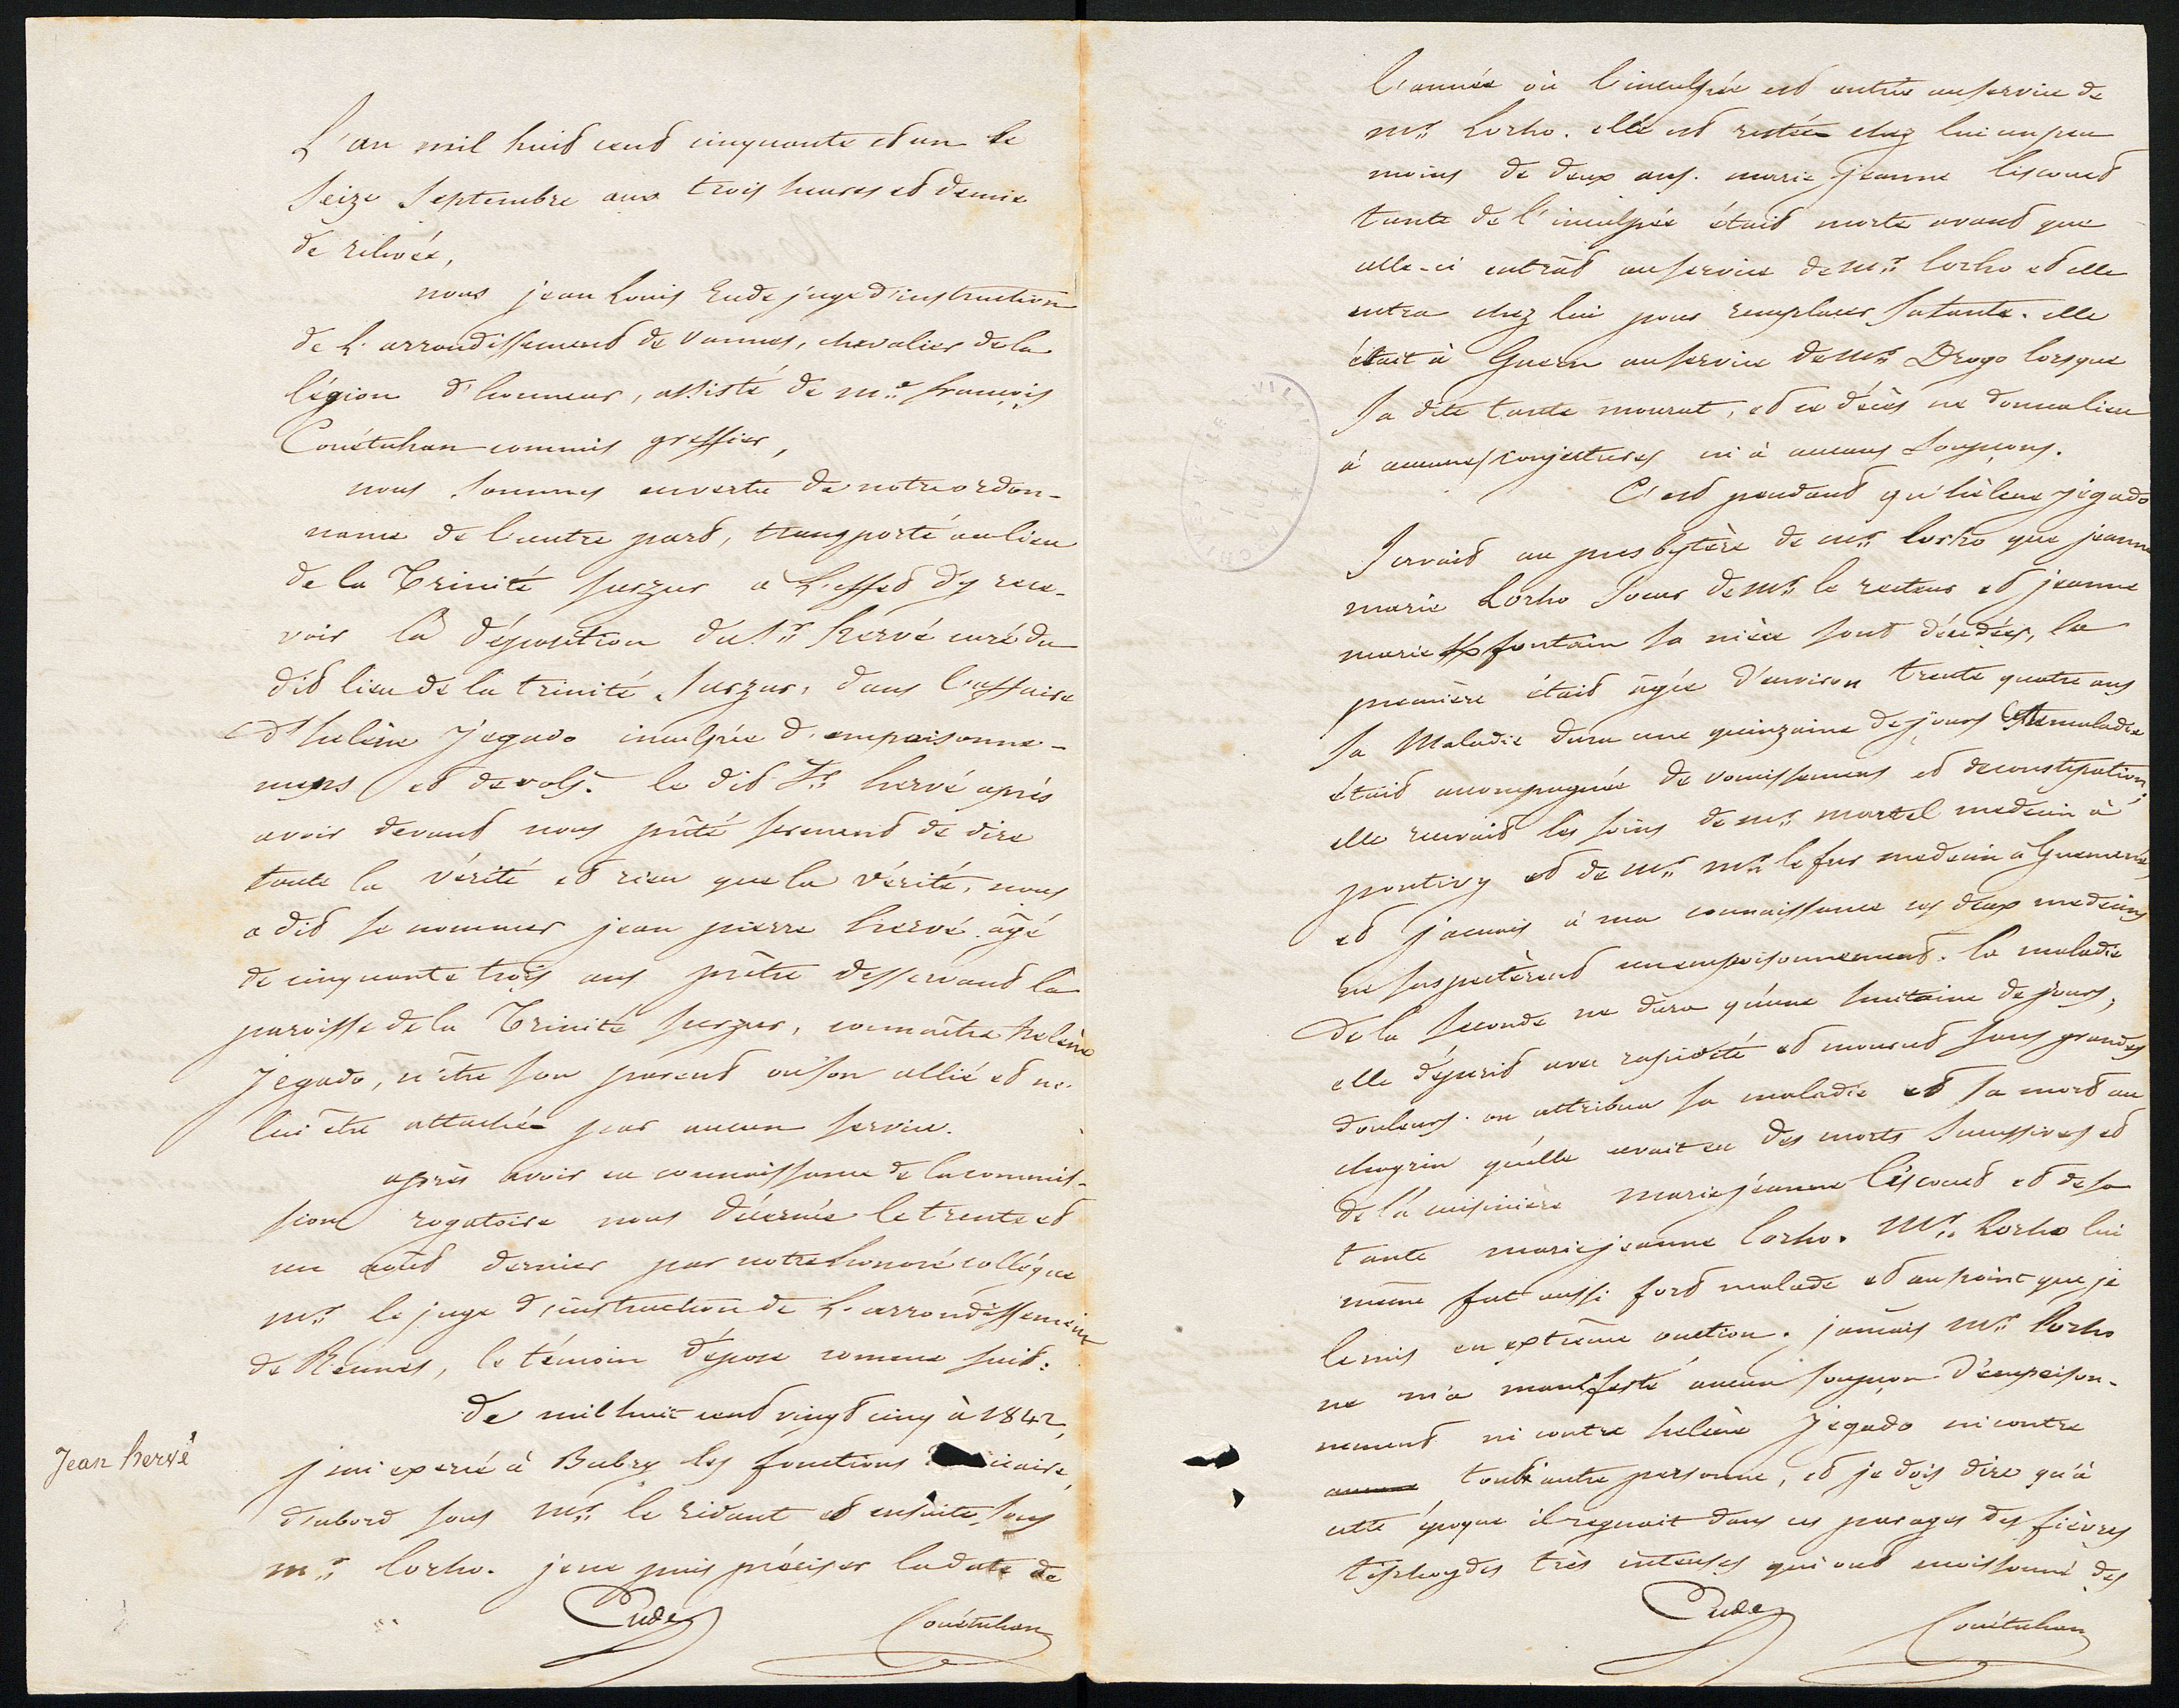 L'an mil huit cent cinquante et un le
seize Septembre aux trois heures et demie
de relevée,
nous jean Louis Eude juge d'instruction
de L'arrondissement de Vannes, chevalier de la
légion d'honneur, assisté de me françois
Couëtuhan commis greffier,
nous sommes en vertu de notre ordon-
nance de l'autre part, transporté au lieu
de la Trinité surzur a L'effet d'y rece-
voir la déposition du Sr hervé curé du
dit lieu de la trinité Surzur, dans l'affaire
d'helène Jégado inculpée d'empoisonne-
mens et de vols. le dit Sr hervé après
avoir devant nous prêté serment de dire
toute la vérité et rien que la vérité, nous
a dit se nommer jean pierre hervé âgé
de cinquante trois ans prêtre desservant la
paroisse de la Trinité surzur, connaître helène
Jégado, n'être son parent ou son allié et ne
lui être attaché par aucun service.
après avoir eu connaissance de la commis-
sion rogatoire nous décernée le trente et
un août dernier par notre honoré collègue
Mr le juge d'instruction de L'arrondissement
de Rennes, le témoin dépose comme suit:
De mil huit cent vingt cinq à 1842,
Jean hervé
j'ai exercé à Bubry les fonctions de vicaire,
d'abord sous Mr le ridant et ensuite sous
mr lorho. je ne puis préciser la date de
Eude Couëtuhan
l'année où l'inculpée est entrée au service de
mr Lorho. elle est restée chez lui un peu
moins de deux ans. marie jeanne liscouet
tante de l'inculpée était morte avant que
celle-ci entrât au service de Mr lorho et elle
entra chez lui pour remplacer sa tante. elle
était à Guern au service de Mr Drogo lorsque
sa dite tante mourut, et ce décès ne donna lieu
à aucunes conjectures ni à aucuns soupçons.
C'est pendant qu'hélène jégado
servait au presbytère de mr lorho que jeanne
marie Lorho soeur de Mr le recteur et jeanne
marie fontain sa nièce sont décédées, la
première était âgée d'environ trente quatre ans
sa Maladie dura une quinzaine de jours cette maladie
était accompagnée de vomissemens et de constipation;
elle recevait les soins de mr martel medecin à
pontivy et de Mr mr le fur medecin à Guemené
et jamais à ma connaissance ces deux medecins
ne suspectèrent un empoisonnement. la maladie
de la seconde ne dura qu'une huitaine de jours,
elle dépérit avec rapidité et mourut sans grandes
douleurs. on attribua sa maladie et sa mort au
chagrin qu'elle avait eu des morts successives et
de la cuisinière marie jeanne liscouet et de sa
tante marie jeanne lorho. Mr Lorho lui
même fut aussi fort malade et au point que je
le mis en extrême onction. jamais Mr lorho
ne m'a manifesté aucun soupçon d'empoison-
nement ni contre helène Jégado ni contre
toute autre personne, et je dois dire qu'à
cette époque il regnait dans ces parages des fièvres
tiphoydes très intenses qui ont moissonné des
Eude Couëtuhan